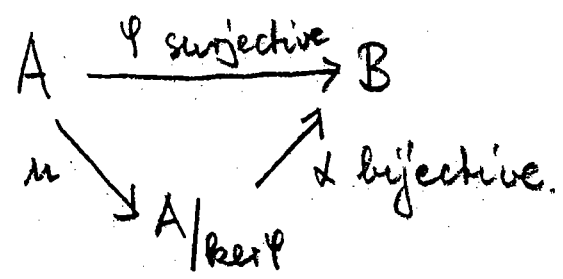 φ surjective
A B
μ α bijective.
A/ker φ